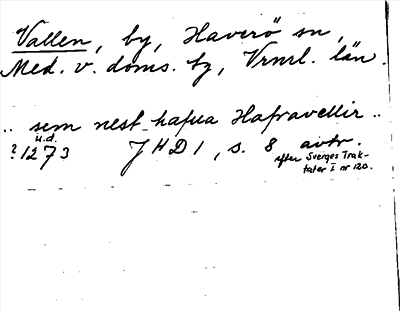 Vallen, by, Haverö sn,
Med. v. doms. bg, Vrnrl. län.
.. sem nest hafua Hafravellir ..
u.d.
? 1273 JHD 1, s. 8 avtr.
efter Sverges Trak-
tater I nr 120.